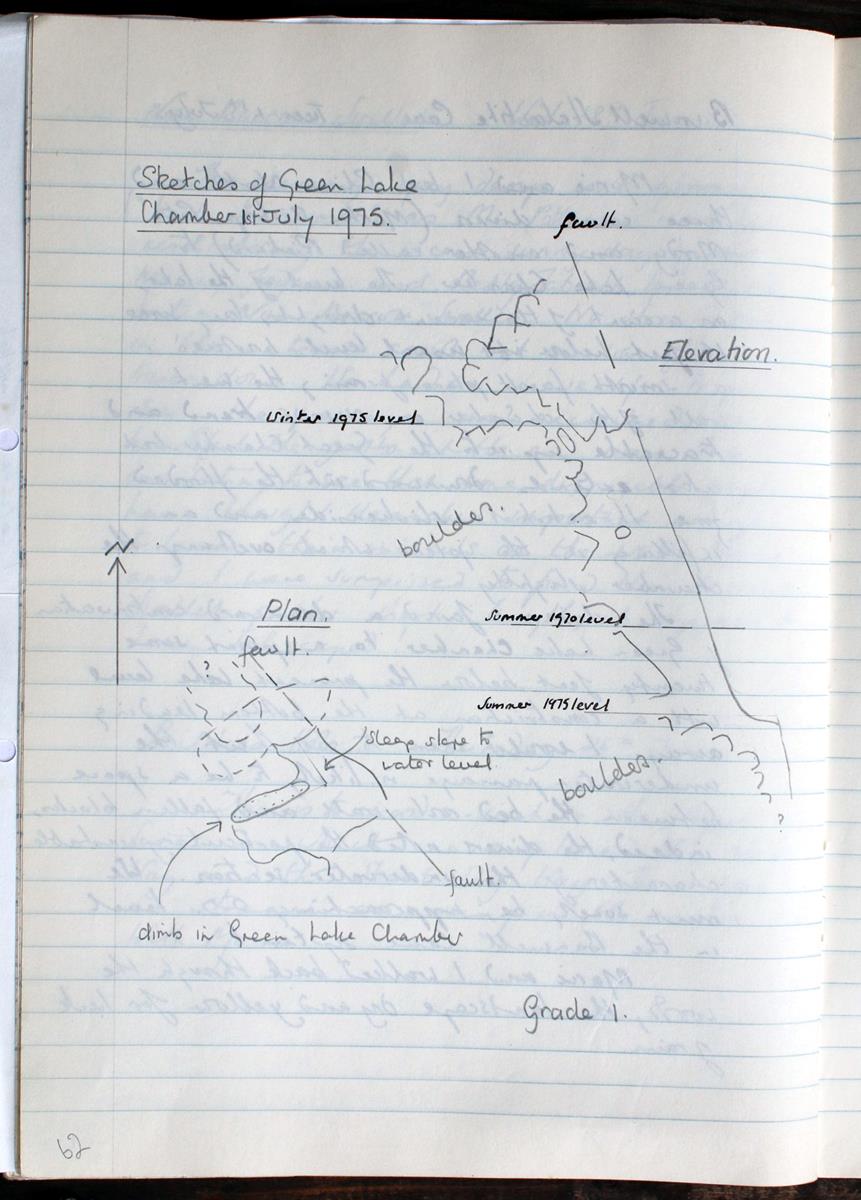 Sketches of Green Lake
Chamber 1st July 1975.
fault.
Elevation.
Winter 1975 level
boulders.
N
Summer 1970 level
Plan.
fault.
?
Summer 1975 level
steep slope to
water level
boulders.
?
fault.
climb in Green Lake Chamber
Grade 1.
62